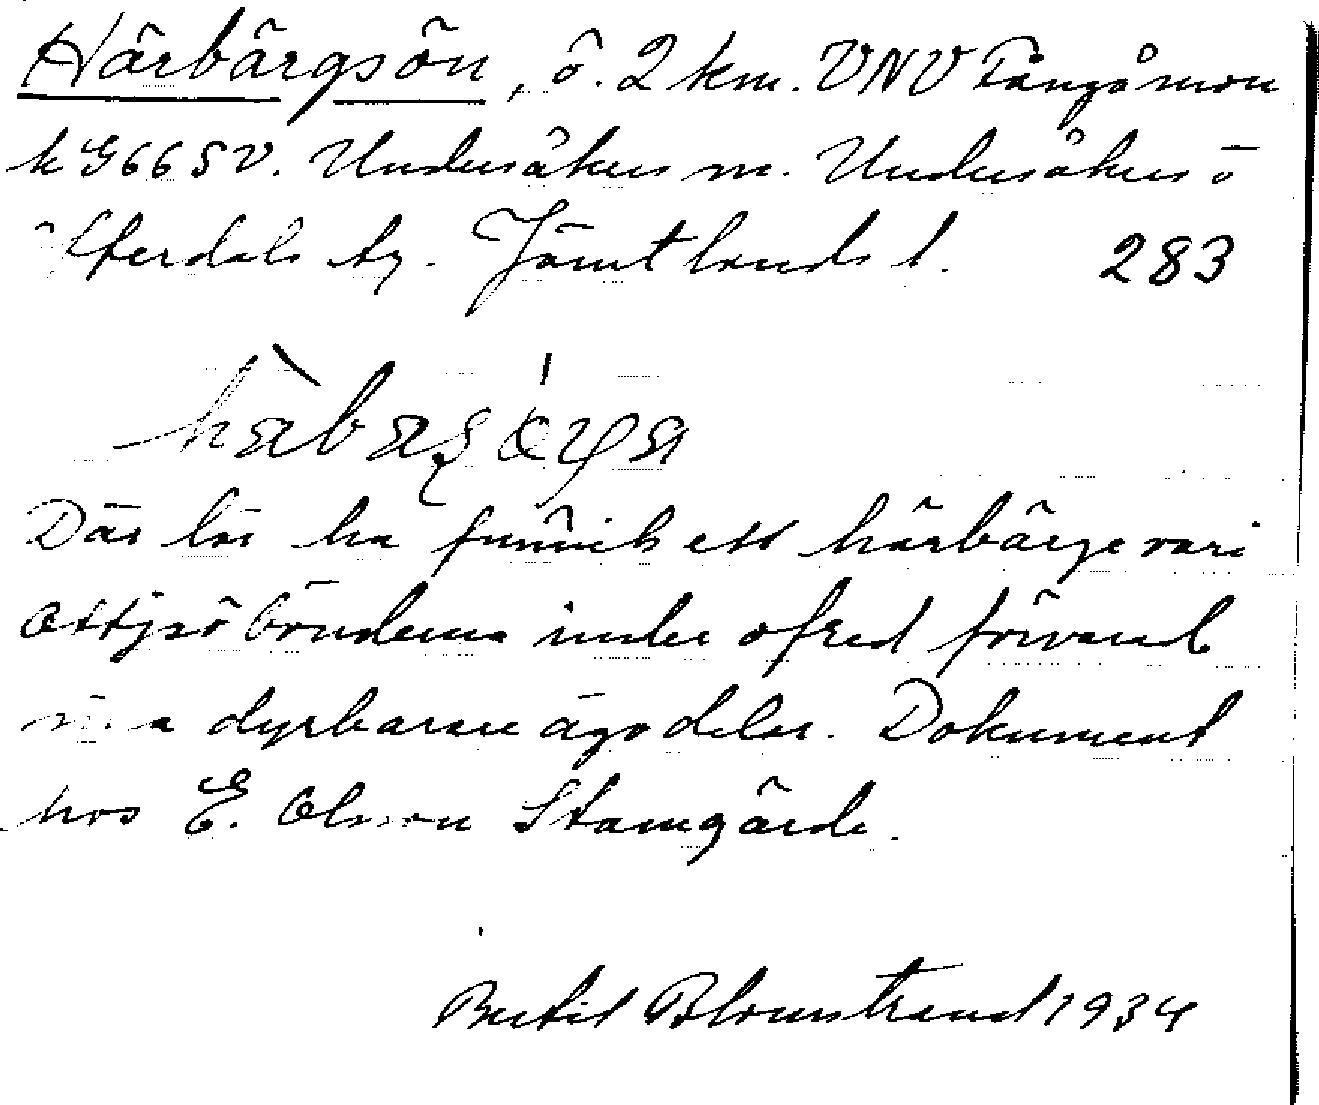 Härbärgsön, ö. 2 km. VNV Tångåmon
k G66 SV. Undersåkers sn. Undersåkers o
Offerdals tg. Jämtlands l. 283
Där lär ha funnits ett härbärge vari
Ottsjöbönderna under ofred förvarat
sina dyrbarare ägodelar. Dokument
hos E. Olsson Stamgärde.
Bertil Blomstrand 1934